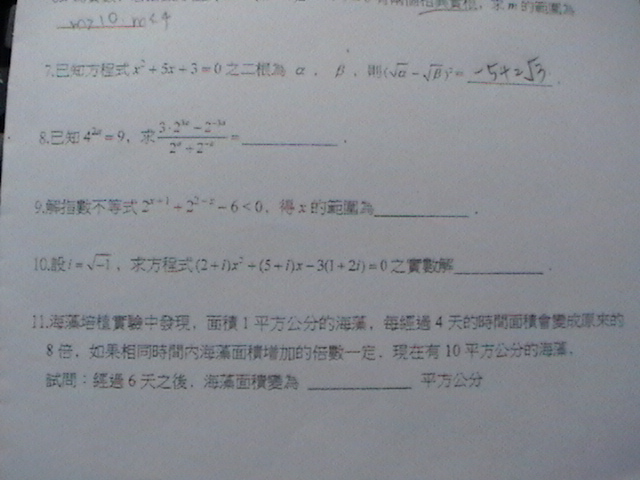 有兩個相異實根，求 m 的範圍為
m≥10 m<4
7.已知方程式 x²+5x+3=0 之二根為 α ， β ，則(√α－√β)²= -5+2√3 .
8.已知 4²ᵃ=9，求 (3·2³ᵃ－2⁻³ᵃ)/(2ᵃ+2⁻ᵃ)= .
9.解指數不等式 2ˣ⁺¹+2²⁻ˣ－6<0，得 x 的範圍為 .
10.設 i=√-1，求方程式(2+i)x²+(5+i)x－3(1+2i)=0 之實數解 .
11.海藻培植實驗中發現，面積 1 平方公分的海藻，每經過 4 天的時間面積會變成原來的
8 倍，如果相同時間內海藻面積增加的倍數一定、現在有 10 平方公分的海藻，
試問：經過 6 天之後，海藻面積變為 平方公分